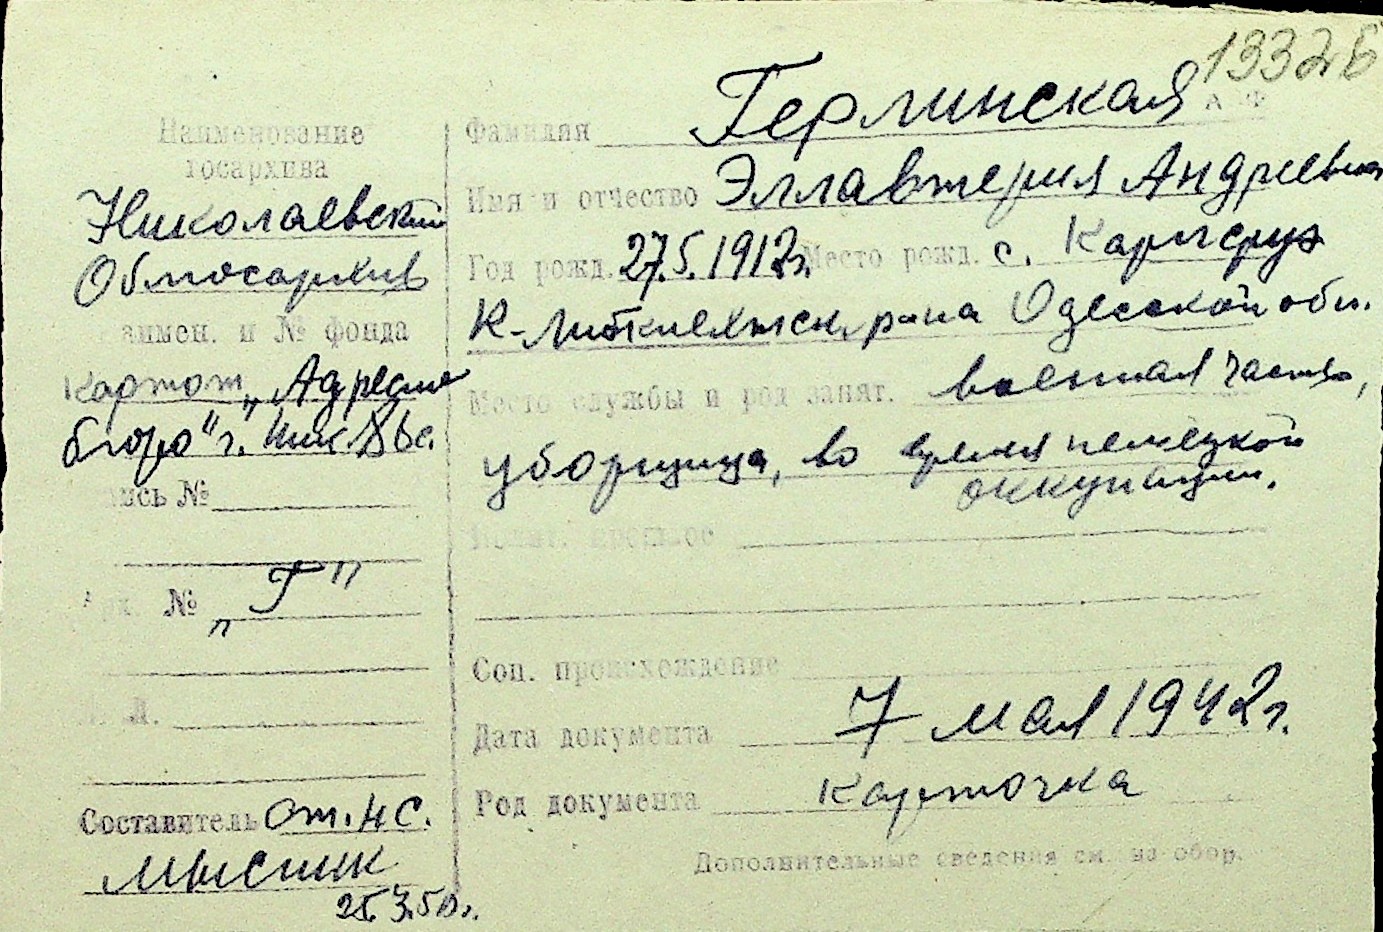 13326
Наименование
госархива
Николаевский
Облгосархив
аимен. и № фонда
Картот. „Адресное
бюро" г. Ник.
ись №
Арх. № „Г"
Л.
Составитель От. Н С.
Мысник
25.3.50г.
А Ф
Фамилия Герлинская
Имя и отчество Эллавтерия Андреевна
Год рожд. 27.5.1912г. Место рожд. с. Карлсруэ
К- р-на Одесской обл.
Место службы и род занят. военная часть,
уборщица, во время немецкой
оккупации.
Соц. происхождение
Дата документа 7 мая 1942г.
Род документа карточка
Дополнительные сведения см. на обор.